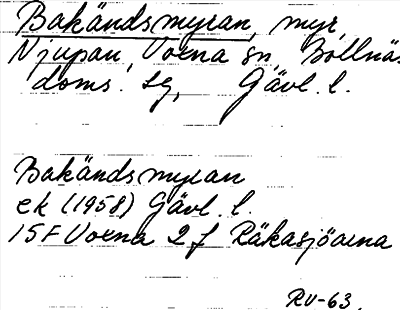 Bakändsmyran, myr,
Njupan, Voxna sn, Bollnäs
doms. sg, Gävl. l.
Bakändsmyran
ek (1958) Gävl. l.
15F Voxna 2 f Räkasjöarna
RV-63.